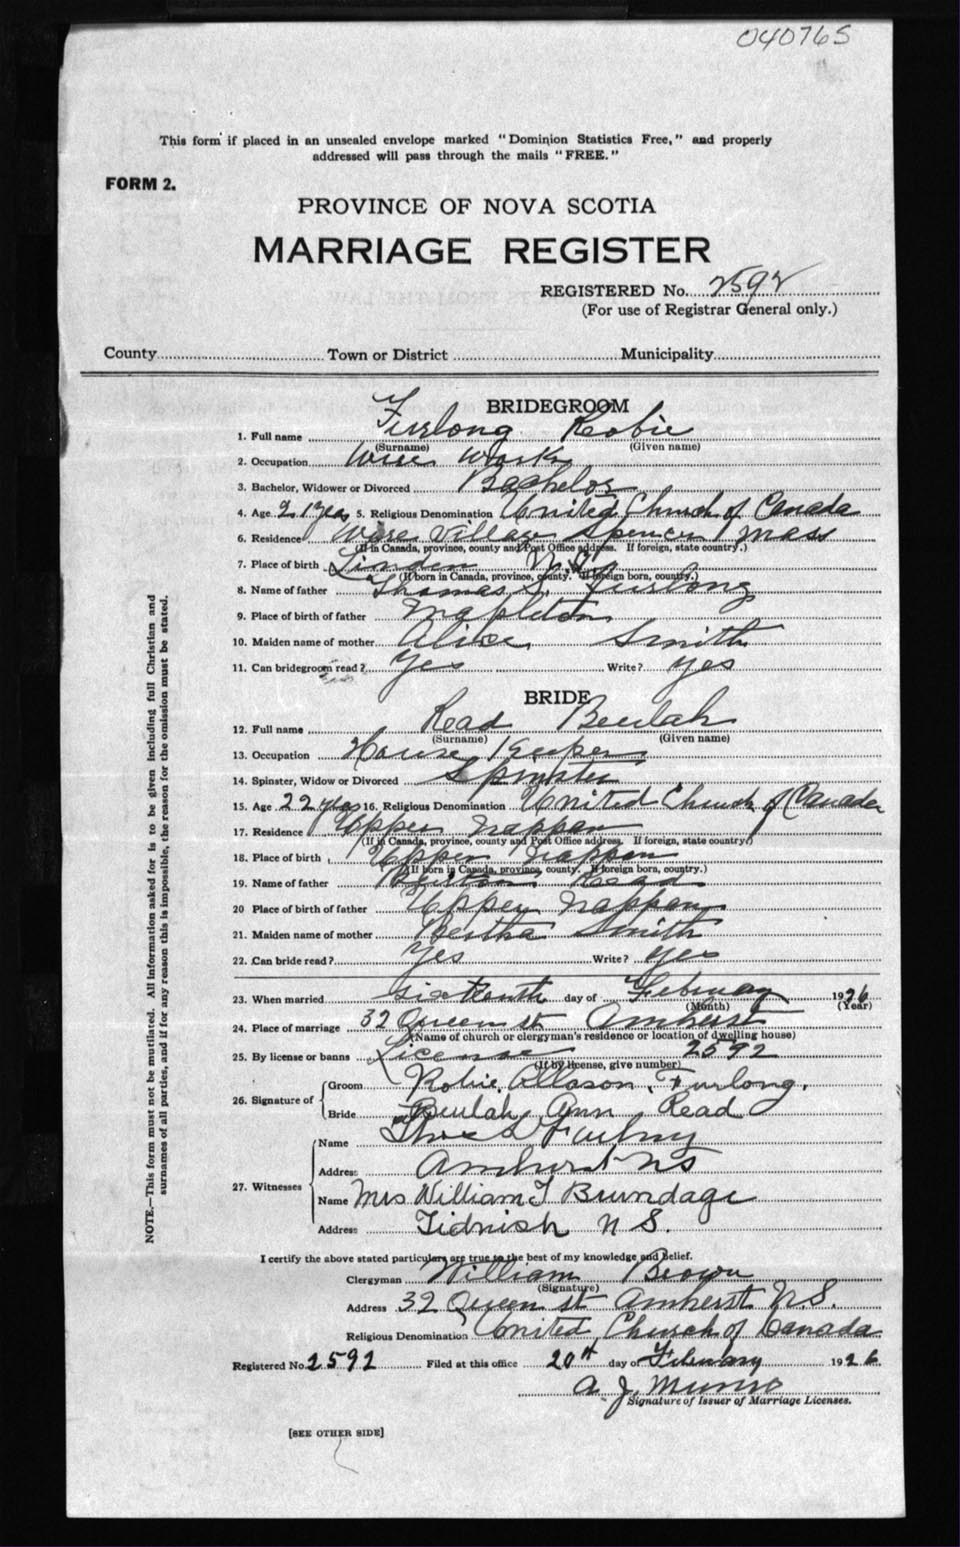 040765
This form if placed in an unsealed envelope marked "Dominion Statistics Free," and properly
addressed will pass through the mails "FREE."
FORM 2.
PROVINCE OF NOVA SCOTIA
MARRIAGE REGISTER
REGISTERED No. 2592
(For use of Registrar General only.)
County Town or District Municipality
BRIDEGROOM
1. Full name Furlong Robie
(Surname) (Given name)
2. Occupation Wire Work
3. Bachelor, Widower or Divorced Bachelor
4. Age 21 yrs 5. Religious Denomination United Church of Canada
6. Residence Wire Village Spencer Mass
(If in Canada, province, county and Post Office address. If foreign, state country.)
7. Place of birth Linden N.S.
(If born in Canada, province, county. If foreign born, country.)
8. Name of father Thomas S. Furlong
9. Place of birth of father Mapleton
10. Maiden name of mother Alice Smith
11. Can bridegroom read? Yes Write? yes
BRIDE
12. Full name Read Beulah
(Surname) (Given name)
13. Occupation House Keeper
14. Spinster, Widow or Divorced Spinster
15. Age 22 yrs 16. Religious Denomination United Church of Canada
17. Residence Upper Nappan
(If in Canada, province, county and Post Office address. If foreign, state country.)
18. Place of birth Upper Nappan
(If born in Canada, province, county. If foreign born, country.)
19. Name of father Read
20 Place of birth of father Upper Nappan
21. Maiden name of mother Bertha Smith
22. Can bride read? Yes Write? Yes
23. When married sixteenth day of February 1926
(Month) (Year)
24. Place of marriage 32 Queen st Amherst
(Name of church or clergyman's residence or location of dwelling house)
25. By license or banns License 2592
(If by license, give number)
26. Signature of Groom Robie Allason Furlong.
Bride Beulah Ann Read
27. Witnesses Name Thos S Furlong
Address Amherst NS
Name Mrs William T Brundage
Address Tidnish N S.
I certify the above stated particulars are true to the best of my knowledge and belief.
Clergyman William Brown
(Signature)
Address 32 Queen st Amherst N.S.
Religious Denomination United Church of Canada
Registered No. 2592 Filed at this office 20th day of February 1926
A. J. Munro
Signature of Issuer of Marriage Licenses.
[SEE OTHER SIDE]
NOTE.—This form must not be mutilated. All information asked for is to be given including full Christian and
surnames of all parties, and if for any reason this is impossible, the reason for the omission must be stated.